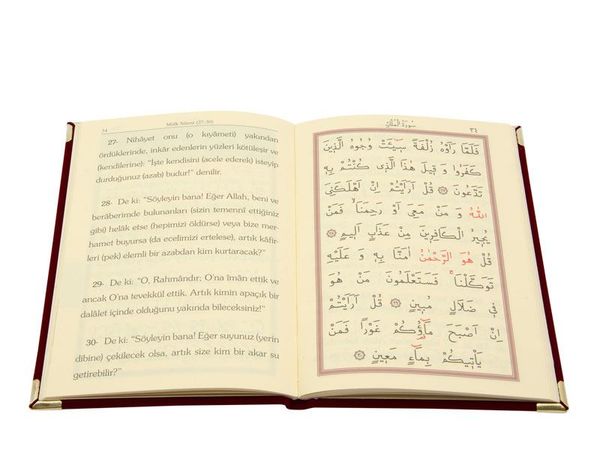 34
Mülk Sûresi (27-30)
27- Nihâyet onu (o kıyâmeti) yakından
ördüklerinde, inkâr edenlerin yüzleri kötüleşir ve
(kendilerine): “İşte kendisini (acele ederek) isteyip
durduğunuz (azab) budur!” denilir.
28- De ki: “Söyleyin bana! Eğer Allah, beni ve
berâberimde bulunanları (sizin temennî ettiğiniz
gibi) helâk etse (hepimizi öldürse) veya bize mer-
hamet buyursa (da ecelimizi ertelese), artık kâfir-
leri (pek) elemli bir azabdan kim kurtaracak?”
29- De ki: “O, Rahmândır; O'na îman ettik ve
ancak O'na tevekkül ettik. Artık kimin apaçık bir
dalâlet içinde olduğunu yakında bileceksiniz!”
30- De ki: “Söyleyin bana! Eğer suyunuz (yerin
dibine) çekilecek olsa, artık size kim bir akar su
getirebilir?”
سُورَةُ الْمُلْكِ
٣٤
فَلَمَّا رَاَوْهُ زُلْفَةً سٓيـَٔتْ وُجُوهُ الَّذٖينَ
كَفَرُوا وَ قٖيلَ هٰذَا الَّذٖى كُنْتُمْ بِهٖ
تَدَّعُونَ ۝ قُلْ اَرَاَيْتُمْ اِنْ اَهْلَكَنِىَ
اللّٰهُ وَ مَنْ مَعِىَ اَوْ رَحِمَنَاۙ فَمَنْ
يُجٖيرُ الْكَافِرٖينَ مِنْ عَذَابٍ اَلٖيمٍ ۝
قُلْ هُوَ الرَّحْمٰنُ اٰمَنَّا بِهٖ وَ عَلَيْهِ
تَوَكَّلْنَاۚ فَسَتَعْلَمُونَ مَنْ هُوَ
فٖى ضَلَالٍ مُبٖينٍ ۝ قُلْ اَرَاَيْتُمْ
اِنْ اَصْبَحَ مَٓاؤُ۬كُمْ غَوْرًا فَمَنْ
يَاْتٖيكُمْ بِمَٓاءٍ مَعٖينٍ ۝